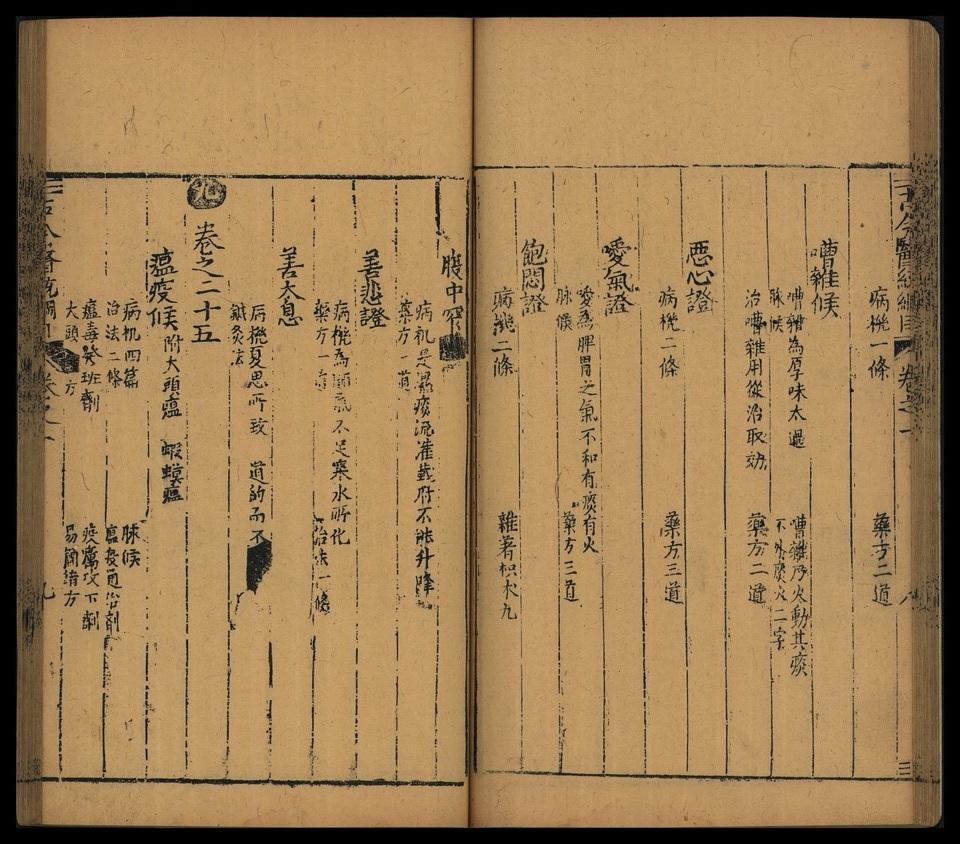 古今醫統綱目 卷之一 八
病機一條 藥方二道
嘈雜候
嘈雜為厚味太過 嘈雜乃火動其痰
脉候 不外痰火二字
治嘈雜用從治取効 藥方二道
惡心證
病機二條 藥方三道
噯氣證
噯為脾胃之氣不和有痰有火
脉候 藥方三道
飽悶證
病機二條 雜著枳朮丸
腹中窄
病机是濕痰流灌臟府不能升降
藥方一道
善悲證
病機為氣不足寒水所化
藥方一道 治法一條
善太息
病機憂思所致 道約而不
鍼灸法
卷之二十五
瘟疫候 附大頭瘟 蝦蟆瘟
病机四篇 脉候
治法二條 瘟疫通治劑
瘟毒發班劑 疫癘攻下劑
大頭 方 易簡諸方
古今醫統綱目 卷之一 九